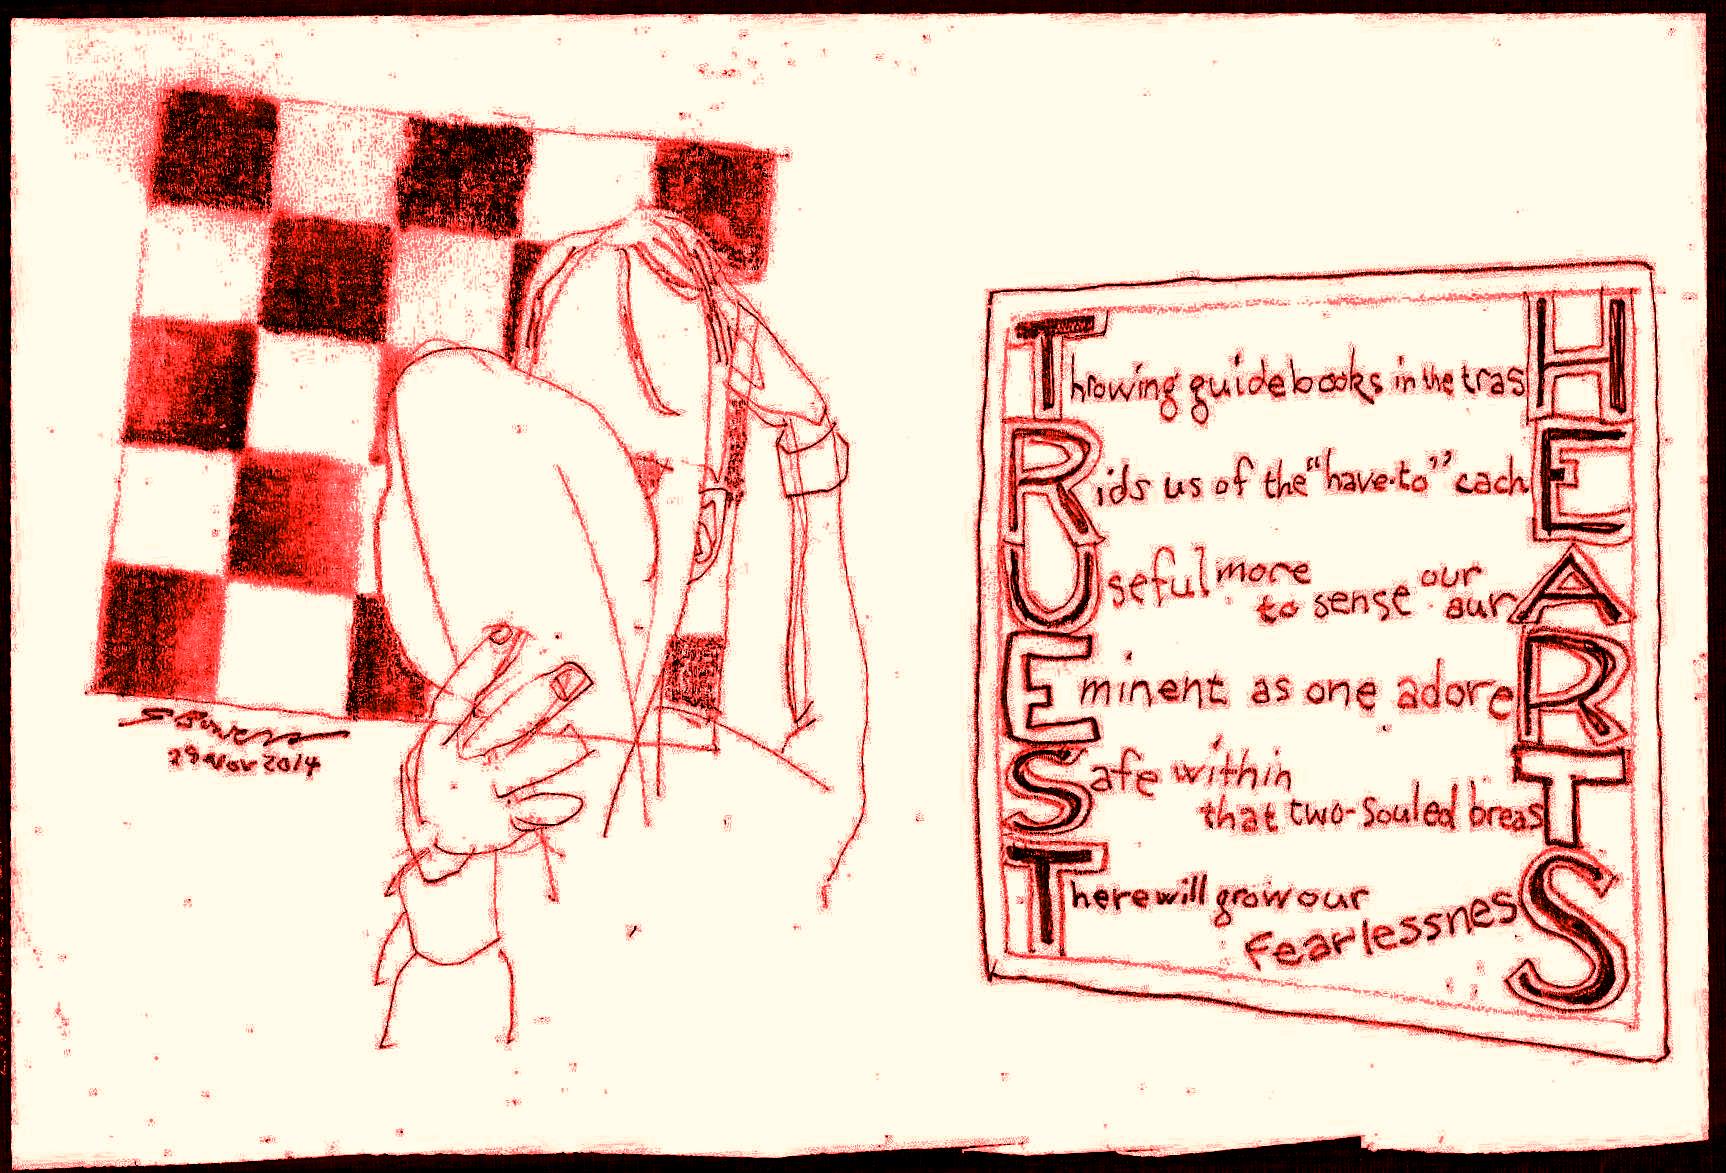 Throwing guidebooks in the trasH
Rids us of the "have-to" cachE
Useful more
to sense our aurA
Eminent as one adoreR
Safe within
that two-souled breasT
There will grow our
fearlessnesS
S Bowers
29 Nov 2014